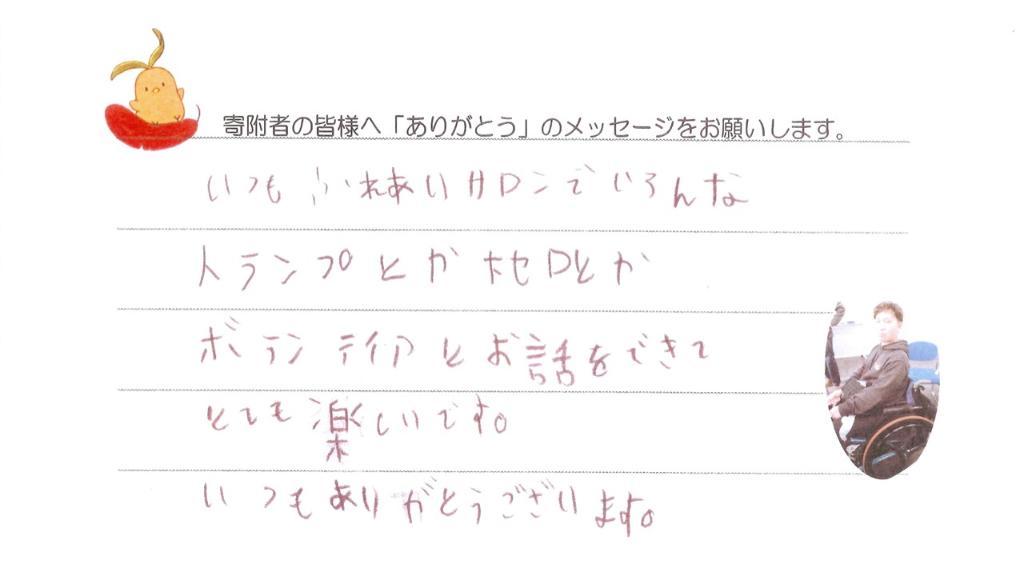 寄附者の皆様へ「ありがとう」のメッセージをお願いします。
いつもふれあいサロンでいろんな
トランプとかオセロとか
ボランティアとお話をできて
とても楽しいです。
いつもありがとうございます。